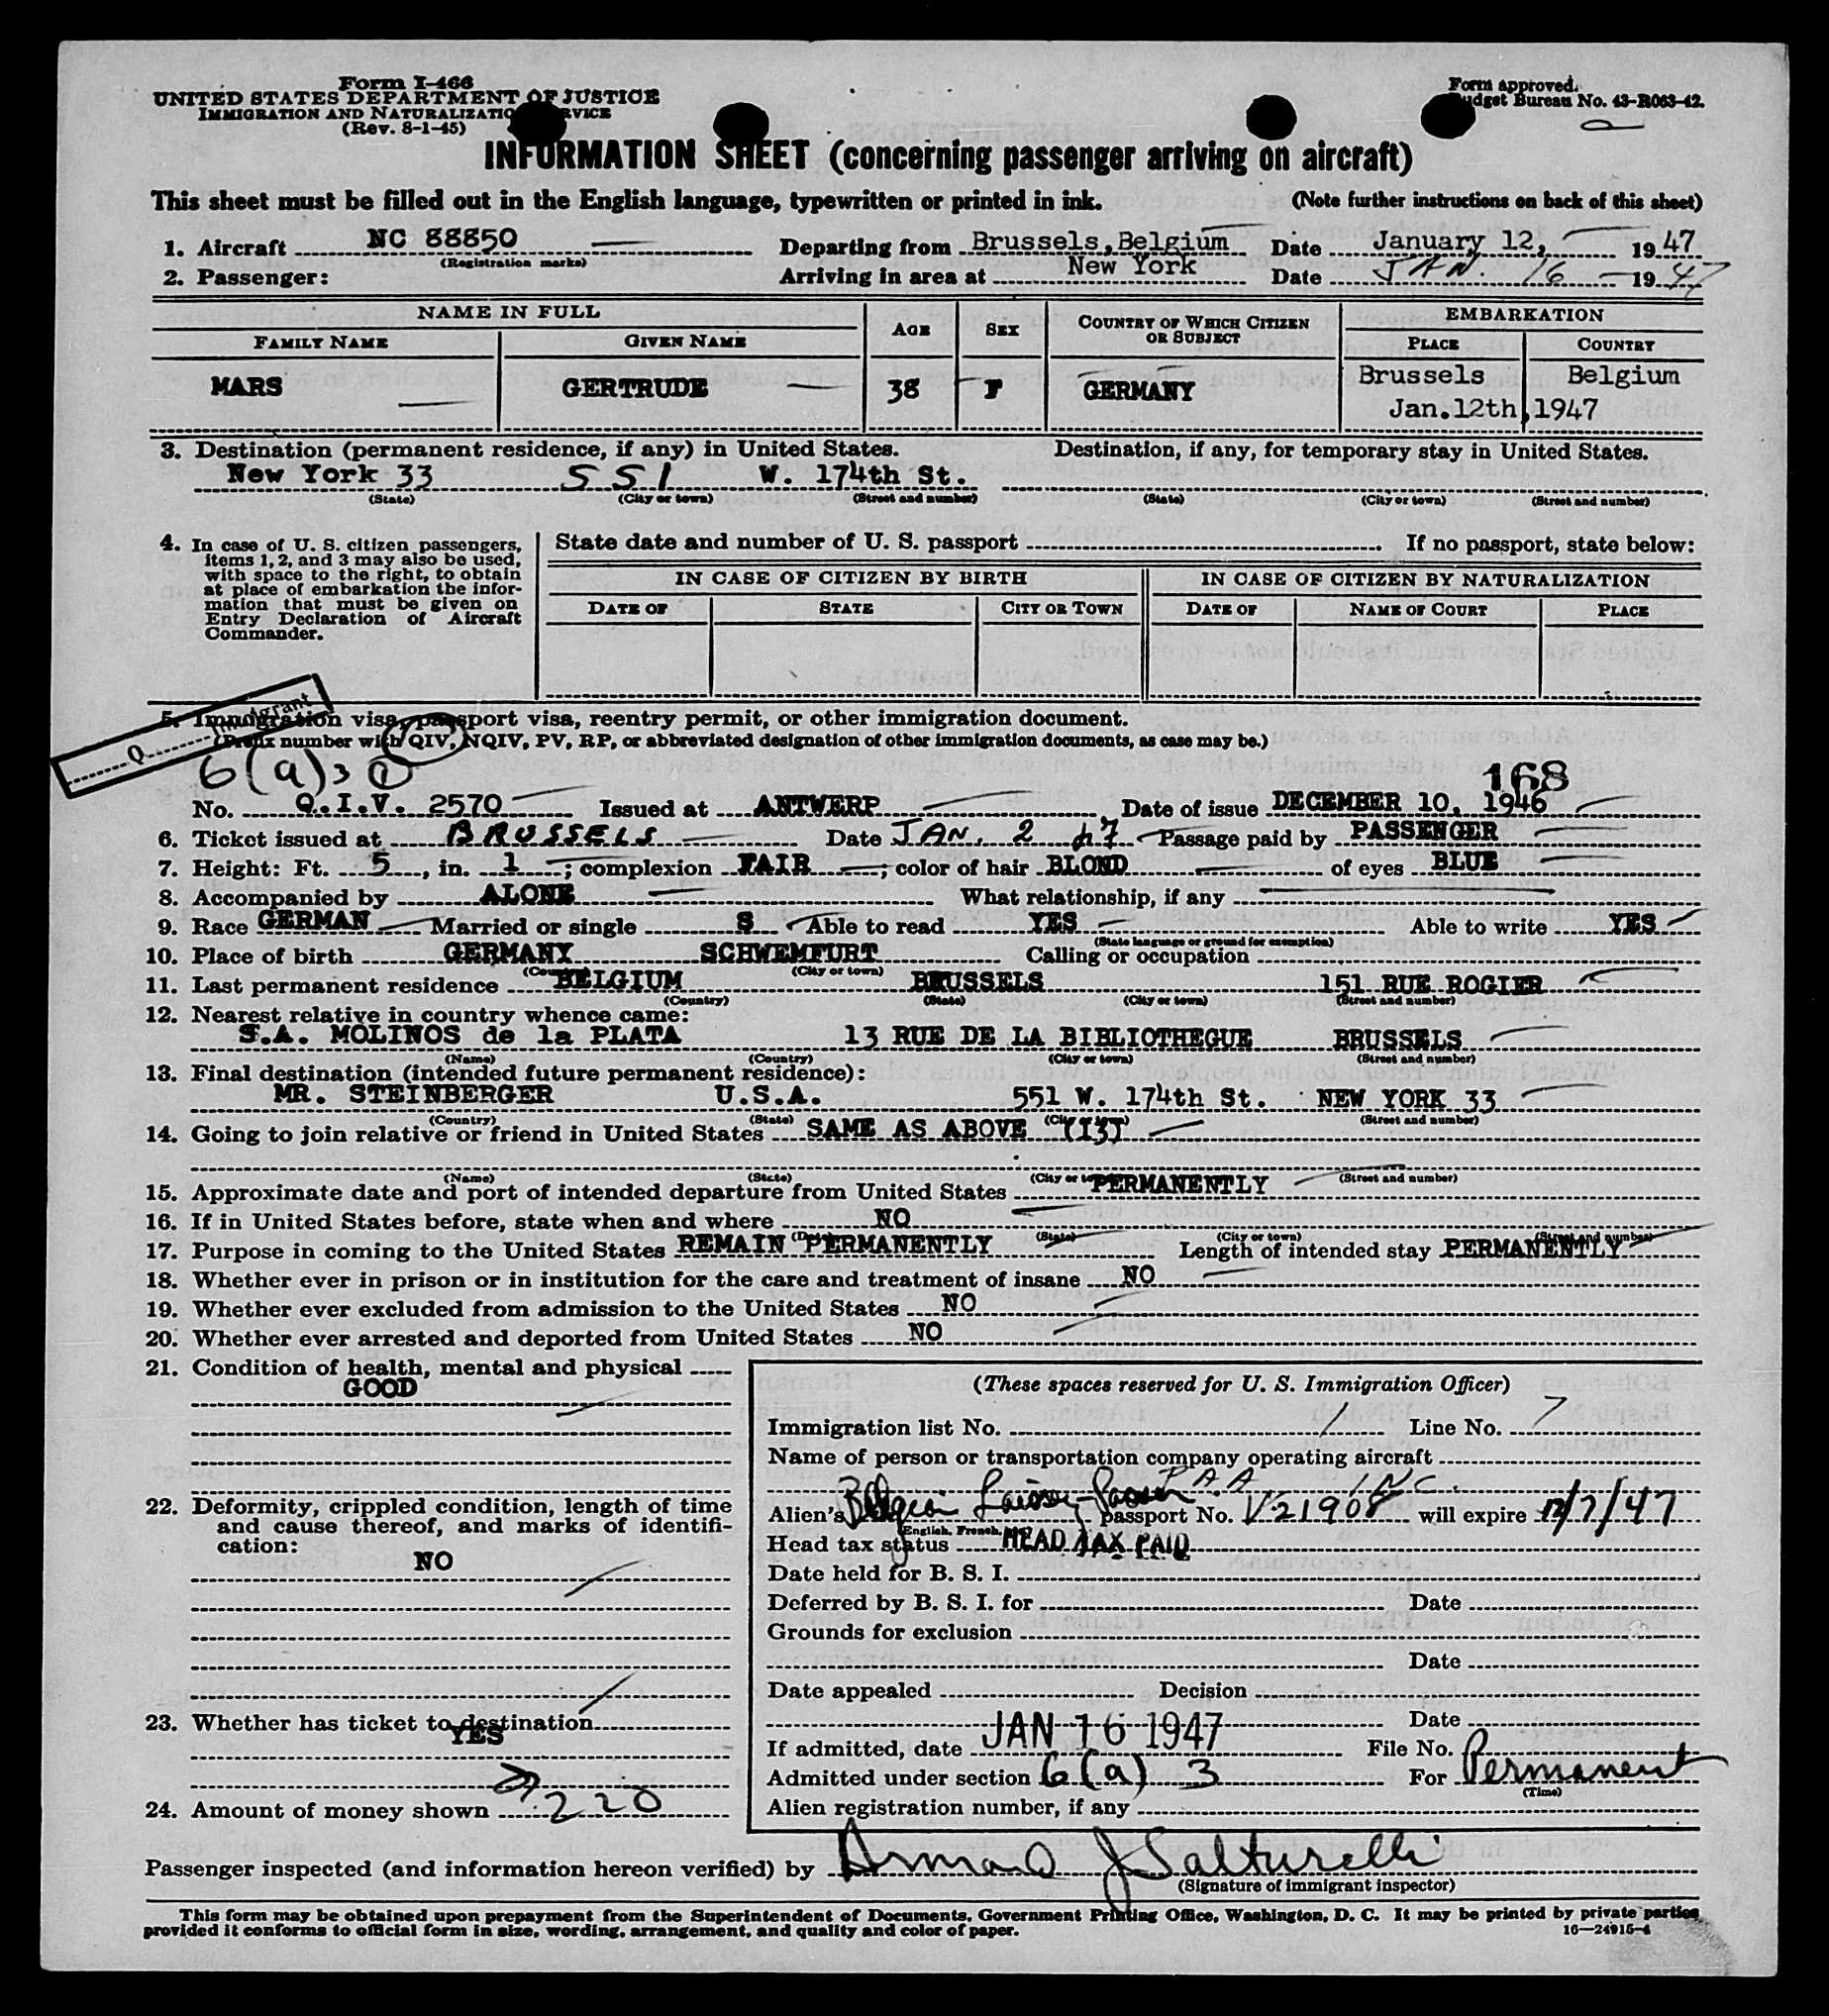 Form I-466
UNITED STATES DEPARTMENT OF JUSTICE
IMMIGRATION AND NATURALIZATION SERVICE
(Rev. 8-1-45)
Form approved.
Budget Bureau No. 43-R063-42.
INFORMATION SHEET (concerning passenger arriving on aircraft)
This sheet must be filled out in the English language, typewritten or printed in ink. (Note further instructions on back of this sheet)
1. Aircraft NC 88850 Departing from Brussels, Belgium Date January 12, 1947
(Registration marks)
2. Passenger: Arriving in area at New York Date JAN. 16 1947
NAME IN FULL AGE SEX COUNTRY OF WHICH CITIZEN OR SUBJECT EMBARKATION
FAMILY NAME GIVEN NAME PLACE COUNTRY
MARS GERTRUDE 38 F GERMANY Brussels Belgium
Jan.12th,1947
3. Destination (permanent residence, if any) in United States. Destination, if any, for temporary stay in United States.
New York 33 551 W. 174th St.
(State) (City or town) (Street and number) (State) (City or town) (Street and number)
4. In case of U. S. citizen passengers, items 1, 2, and 3 may also be used, with space to the right, to obtain at place of embarkation the information that must be given on Entry Declaration of Aircraft Commander.
State date and number of U. S. passport If no passport, state below:
IN CASE OF CITIZEN BY BIRTH IN CASE OF CITIZEN BY NATURALIZATION
DATE OF STATE CITY OR TOWN DATE OF NAME OF COURT PLACE
Q Immigrant
5. Immigration visa, passport visa, reentry permit, or other immigration document.
(Prefix number with QIV, NQIV, PV, RP, or abbreviated designation of other immigration documents, as case may be.)
6(a)3 1
168
No. Q.I.V. 2570 Issued at ANTWERP Date of issue DECEMBER 10, 1946
6. Ticket issued at BRUSSELS Date JAN. 2 47 Passage paid by PASSENGER
7. Height: Ft. 5, in. 1; complexion FAIR; color of hair BLOND of eyes BLUE
8. Accompanied by ALONE What relationship, if any
9. Race GERMAN Married or single S Able to read YES Able to write YES
(State language or ground for exemption)
10. Place of birth GERMANY SCHWEMFURT Calling or occupation
(Country) (City or town)
11. Last permanent residence BELGIUM BRUSSELS 151 RUE ROGIER
(Country) (State) (City or town) (Street and number)
12. Nearest relative in country whence came:
S.A. MOLINOS de la PLATA 13 RUE DE LA BIBLIOTHEGUE BRUSSELS
(Name) (Country) (City or town) (Street and number)
13. Final destination (intended future permanent residence):
MR. STEINBERGER U.S.A. 551 W. 174th St. NEW YORK 33
(Country) (State) (City) (Street and number)
14. Going to join relative or friend in United States SAME AS ABOVE (13)
(Name) (State) (City or town) (Street and number)
15. Approximate date and port of intended departure from United States PERMANENTLY
16. If in United States before, state when and where NO
(Date) (State) (City or town) (Street and number)
17. Purpose in coming to the United States REMAIN PERMANENTLY Length of intended stay PERMANENTLY
18. Whether ever in prison or in institution for the care and treatment of insane NO
19. Whether ever excluded from admission to the United States NO
20. Whether ever arrested and deported from United States NO
21. Condition of health, mental and physical
GOOD
22. Deformity, crippled condition, length of time and cause thereof, and marks of identification:
NO
23. Whether has ticket to destination
YES
24. Amount of money shown 220
(These spaces reserved for U. S. Immigration Officer)
Immigration list No. 1 Line No. 7
Name of person or transportation company operating aircraft
P.A.A. INC.
Alien's Belgian Laissez-Passer passport No. V21908 will expire 12/7/47
(English, French, etc.)
Head tax status HEAD TAX PAID
Date held for B. S. I.
Deferred by B. S. I. for Date
Grounds for exclusion
Date
Date appealed Decision
Date
If admitted, date JAN 16 1947 File No.
Admitted under section 6(a) 3 For Permanent
(Time)
Alien registration number, if any
Passenger inspected (and information hereon verified) by Armand J Salturelli
(Signature of immigrant inspector)
This form may be obtained upon prepayment from the Superintendent of Documents, Government Printing Office, Washington, D. C. It may be printed by private parties
provided it conforms to official form in size, wording, arrangement, and quality and color of paper. 16—24915-4